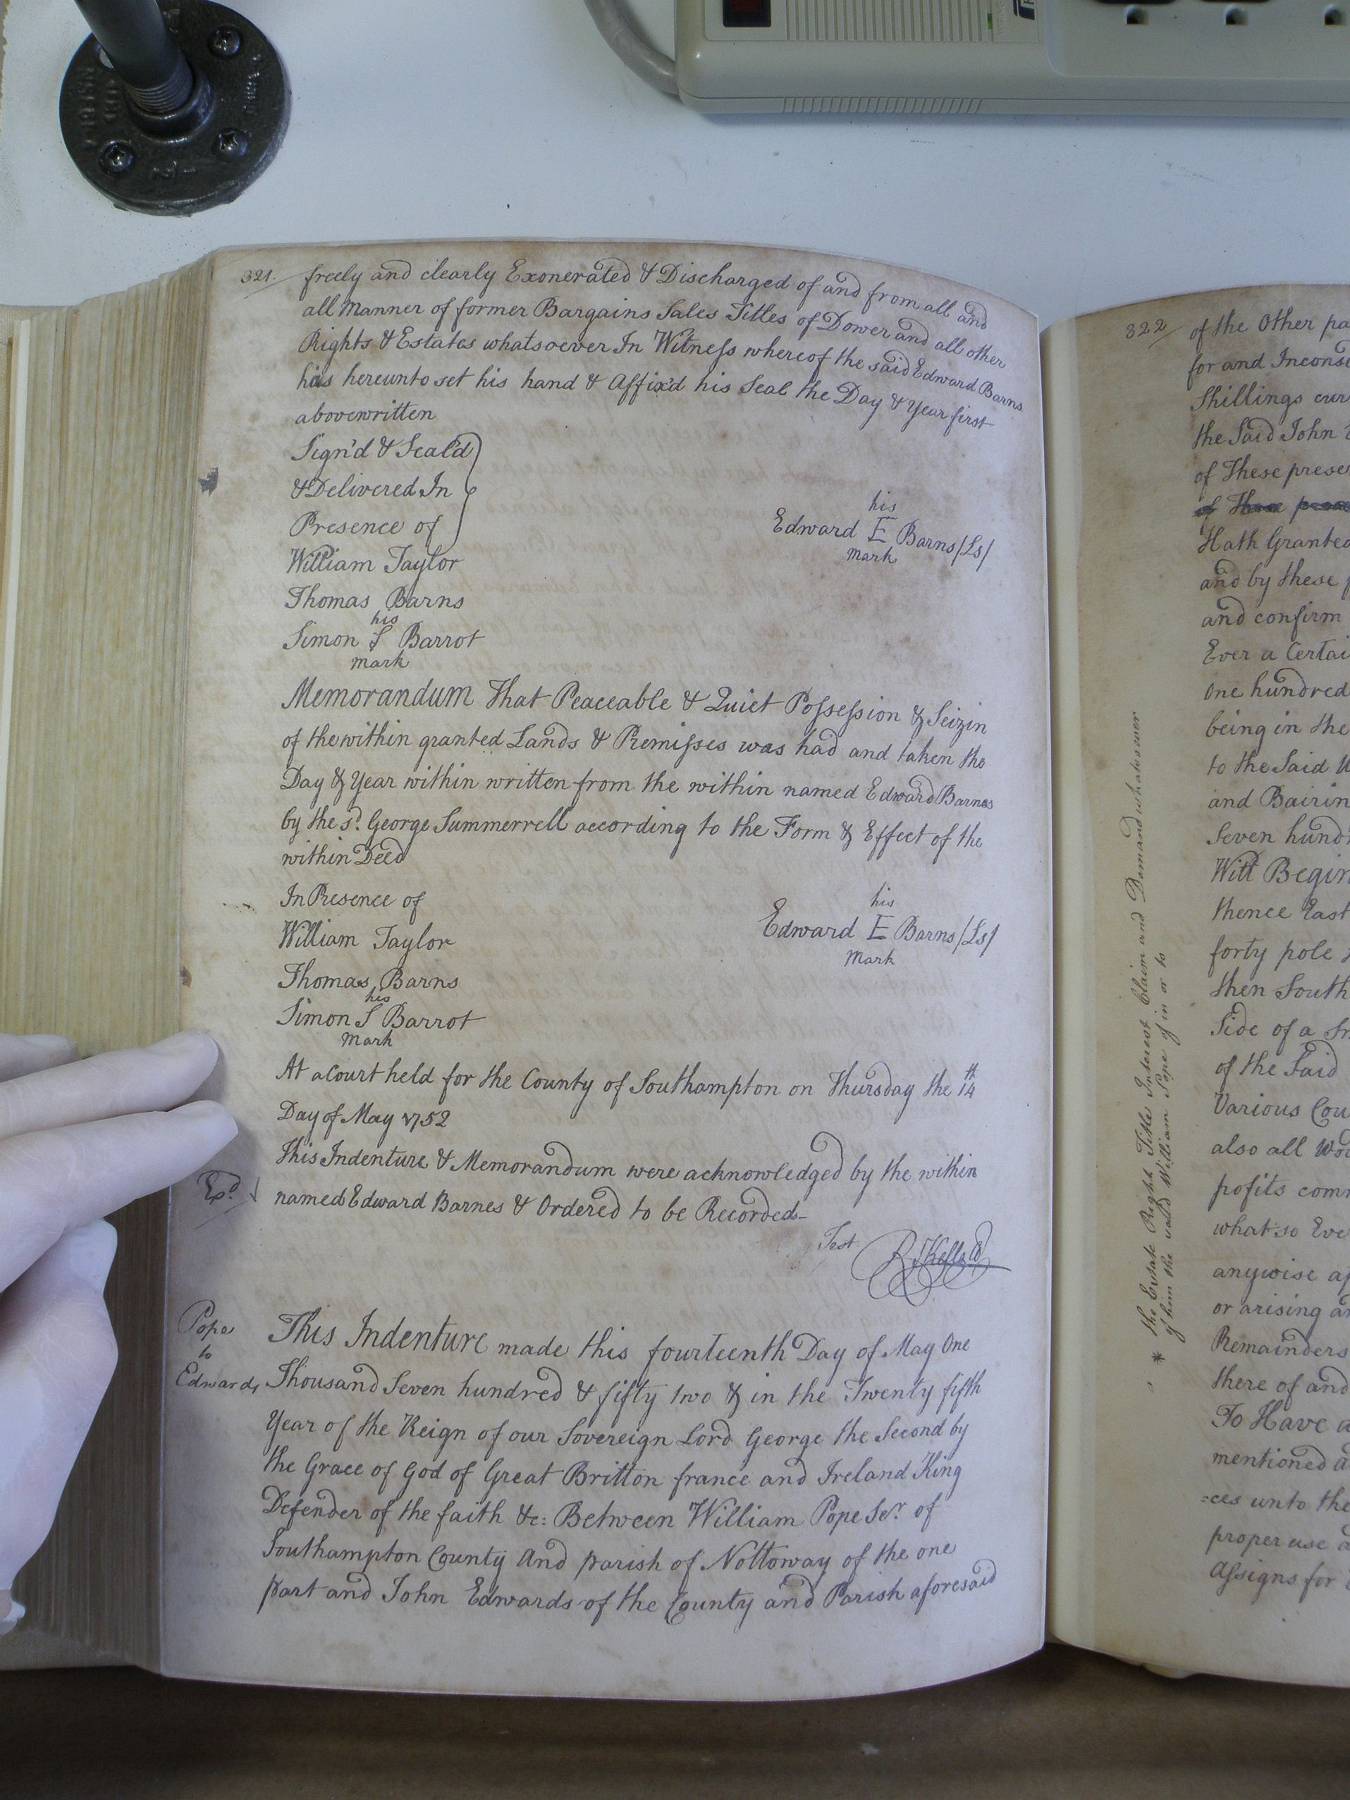 321.
freely and clearly Exonerated & Discharged of and from all and
all Manner of former Bargains Sales Titles of Dower and all other
Rights & Estates whatsoever In Witness whereof the said Edward Barns
has hereunto set his hand & Affix'd his Seal the Day & Year first
abovewritten
Sign'd & Seal'd
& Delivered In
Presence of
his
Edward E Barns /Ls/
mark
William Taylor
Thomas Barns
his
Simon S Barrot
mark
Memorandum That Peaceable & Quiet Possession & Seizin
of the within granted Lands & Premisses was had and taken the
Day & Year within written from the within named Edward Barnes
by the sd. George Summerrell according to the Form & Effect of the
within Deed
In Presence of
his
Edward E Barns /Ls/
Mark
William Taylor
Thomas Barns
his
Simon S Barrot
Mark
At a Court held for the County of Southampton on Thursday the 14th
Day of May 1752
This Indenture & Memorandum were acknowledged by the within
Exd.
named Edward Barnes & Ordered to be Recorded
Test
Pope
to
Edwards
This Indenture made this fourteenth Day of May One
Thousand Seven hundred & fifty two & in the Twenty fifth
Year of the Reign of our Sovereign Lord George the Second by
the Grace of God of Great Britton france and Ireland King
Defender of the faith &c: Between William Pope Senr. of
Southampton County And parish of Nottoway of the one
part and John Edwards of the County and Parish aforesaid
322
of the Other
for and
Shillings
the Said John
of These
Hath Granted
and by these
and confirm
Ever a
One hundred
being in the
to the Said
and
Seven
Will Begin
thence East
forty pole
then South
Side of a
of the Said
Various
also all
profits
what so
anywise
or arising
Remainders
there of and
To Have
mentioned
=ces unto the
proper use
Assigns for
* the Estate Right Title Interest Claim and Demand whatsoever
of him the said William Pope of in or to